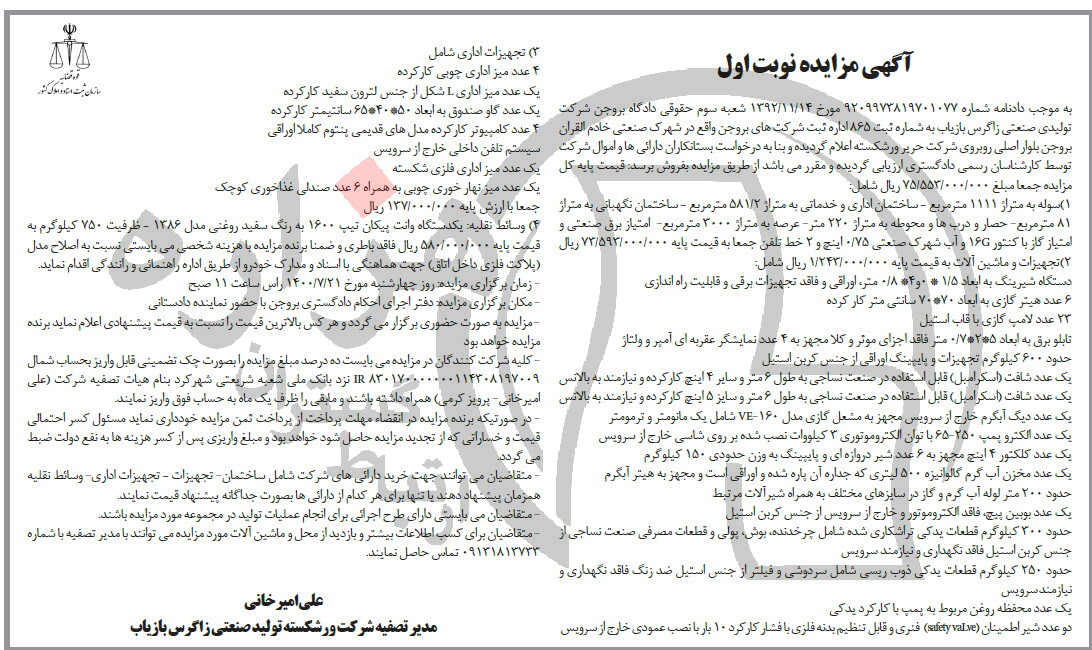 آگهی مزایده نوبت اول
به موجب دادنامه شماره ۹۲۰۹۹۷۳۸۱۹۷۰۱۰۷۷ مورخ ۱۳۹۲/۱۱/۱۴ شعبه سوم حقوقی دادگاه بروجن شرکت
تولیدی صنعتی زاگرس بازیاب به شماره ثبت ۸۶۵ اداره ثبت شرکت های بروجن واقع در شهرک صنعتی خادم القران
بروجن بلوار اصلی روبروی شرکت حریر ورشکسته اعلام گردیده و بنا به درخواست بستانکاران دارائی ها و اموال شرکت
توسط کارشناسان رسمی دادگستری ارزیابی گردیده و مقرر می باشد از طریق مزایده بفروش برسد: قیمت پایه کل
مزایده جمعا مبلغ ۷۵/۵۵۳/۰۰۰/۰۰۰ ریال شامل:
۱)سوله به متراژ ۱۱۱۱ مترمربع - ساختمان اداری و خدماتی به متراژ ۵۸۱/۲ مترمربع - ساختمان نگهبانی به متراژ
۸۱ مترمربع- حصار و درب ها و محوطه به متراژ ۲۲۰ متر- عرصه به متراژ ۳۰۰۰ مترمربع- امتیاز برق صنعتی و
امتیاز گاز با کنتور 16G و آب شهرک صنعتی ۰/۷۵ اینچ و ۲ خط تلفن جمعا به قیمت پایه ۷۳/۵۹۳/۰۰۰/۰۰۰ ریال
۲)تجهیزات و ماشین آلات به قیمت پایه ۱/۲۴۳/۰۰۰/۰۰۰ ریال شامل:
دستگاه شیرینگ به ابعاد ۱/۵ * ۴و۰* ۰/۸ متر، اوراقی و فاقد تجهیزات برقی و قابلیت راه اندازی
۶ عدد هیتر گازی به ابعاد ۷۰*۷۰ سانتی متر کار کرده
۲۳ عدد لامپ گازی با قاب استیل
تابلو برق به ابعاد ۵*۲*۰/۷ متر فاقد اجزای موثر و کلا مجهز به ۴ عدد نمایشگر عقربه ای آمپر و ولتاژ
حدود ۶۰۰ کیلوگرم تجهیزات و پایپینگ اوراقی از جنس کربن استیل
یک عدد شافت (اسکرامبل) قابل استفاده در صنعت نساجی به طول ۶ متر و سایر ۴ اینچ کارکرده و نیازمند به بالانس
یک عدد شافت (اسکرامبل) قابل استفاده در صنعت نساجی به طول ۶ متر و سایز ۵ اینچ کارکرده و نیازمند به بالانس
یک عدد دیگ آبگرم خارج از سرویس مجهز به مشعل گازی مدل VE-۱۶۰ شامل یک مانومتر و ترمومتر
یک عدد الکترو پمپ ۲۵۰-۶۵ با توان الکتروموتوری ۳ کیلووات نصب شده بر روی شاسی خارج از سرویس
یک عدد کلکتور ۴ اینچ مجهز به ۶ عدد شیر دروازه ای و پایپینگ به وزن حدودی ۱۵۰ کیلوگرم
یک عدد مخزن آب گرم گالوانیزه ۵۰۰ لیتری که جداره آن پاره شده و اوراقی است و مجهز به هیتر آبگرم
حدود ۲۰۰ متر لوله آب گرم و گاز در سایزهای مختلف به همراه شیرآلات مرتبط
یک عدد بوبین پیچ، فاقد الکتروموتور و خارج از سرویس از جنس کربن استیل
حدود ۳۰۰ کیلوگرم قطعات یدکی تراشکاری شده شامل چرخدنده، بوش، پولی و قطعات مصرفی صنعت نساجی از
جنس کربن استیل فاقد نگهداری و نیازمند سرویس
حدود ۲۵۰ کیلوگرم قطعات یدکی ذوب ریسی شامل سردوشی و فیلتر از جنس استیل ضد زنگ فاقد نگهداری و
نیازمند سرویس
یک عدد محفظه روغن مربوط به پمپ با کارکرد یدکی
دو عدد شیر اطمینان (safety vaLve) فنری و قابل تنظیم بدنه فلزی با فشار کارکرد ۱۰ بار با نصب عمودی خارج از سرویس
قوه قضائیه
سازمان ثبت اسناد و املاک کشور
۳) تجهیزات اداری شامل
۴ عدد میز اداری چوبی کارکرده
یک عدد میز اداری L شکل از جنس لترون سفید کارکرده
یک عدد گاو صندوق به ابعاد ۵۰*۴۰*۶۵ سانتیمتر کارکرده
۴ عدد کامپیوتر کارکرده مدل های قدیمی پنتوم کاملا اوراقی
سیستم تلفن داخلی خارج از سرویس
یک عدد میز اداری فلزی شکسته
یک عدد میز نهار خوری چوبی به همراه ۶ عدد صندلی غذاخوری کوچک
جمعا با ارزش پایه ۱۳۷/۰۰۰/۰۰۰ ریال
۴) وسائط نقلیه: یکدستگاه وانت پیکان تیپ ۱۶۰۰ به رنگ سفید روغنی مدل ۱۳۸۶ - ظرفیت ۷۵۰ کیلوگرم به
قیمت پایه ۵۸۰/۰۰۰/۰۰۰ ریال فاقد باطری و ضمنا برنده مزایده با هزینه شخصی می بایستی نسبت به اصلاح مدل
(پلاکت فلزی داخل اتاق) جهت هماهنگی با اسناد و مدارک خودرو از طریق اداره راهنمائی و رانندگی اقدام نماید.
- زمان برگزاری مزایده: روز چهارشنبه مورخ ۱۴۰۰/۷/۲۱ راس ساعت ۱۱ صبح
- مکان برگزاری مزایده: دفتر اجرای احکام دادگستری بروجن با حضور نماینده دادستانی
- مزایده به صورت حضوری برگزار می گردد و هر کس بالاترین قیمت را نسبت به قیمت پیشنهادی اعلام نماید برنده
مزایده خواهد بود
- کلیه شرکت کنندگان در مزایده می بایست ده درصد مبلغ مزایده را بصورت چک تضمینی قابل واریز بحساب شمال
IR ۸۳۰۱۷۰۰۰۰۰۰۰۱۱۴۳۰۸۱۹۷۰۰۹ نزد بانک ملی شعبه شریعتی شهرکرد بنام هیات تصفیه شرکت (علی
امیرخانی- پرویز کرمی) همراه داشته باشند و مابقی را ظرف یک ماه به حساب فوق واریز نمایند.
- در صورتیکه برنده مزایده در انقضاء مهلت پرداخت از پرداخت ثمن مزایده خودداری نماید مسئول کسر احتمالی
قیمت و خساراتی که از تجدید مزایده حاصل شود خواهد بود و مبلغ واریزی پس از کسر هزینه ها به نفع دولت ضبط
می گردد.
- متقاضیان می توانند جهت خرید دارائی های شرکت شامل ساختمان- تجهیزات - تجهیزات اداری- وسائط نقلیه
همزمان پیشنهاد دهند یا تنها برای هر کدام از دارائی ها بصورت جداگانه پیشنهاد قیمت نمایند.
- متقاضیان می بایستی دارای طرح اجرائی برای انجام عملیات تولید در مجموعه مورد مزایده باشند.
- متقاضیان برای کسب اطلاعات بیشتر و بازدید از محل و ماشین آلات مورد مزایده می توانند با مدیر تصفیه با شماره
۰۹۱۳۱۸۱۳۷۳۳ تماس حاصل نمایند.
علی امیرخانی
مدیر تصفیه شرکت ورشکسته تولید صنعتی زاگرس بازیاب